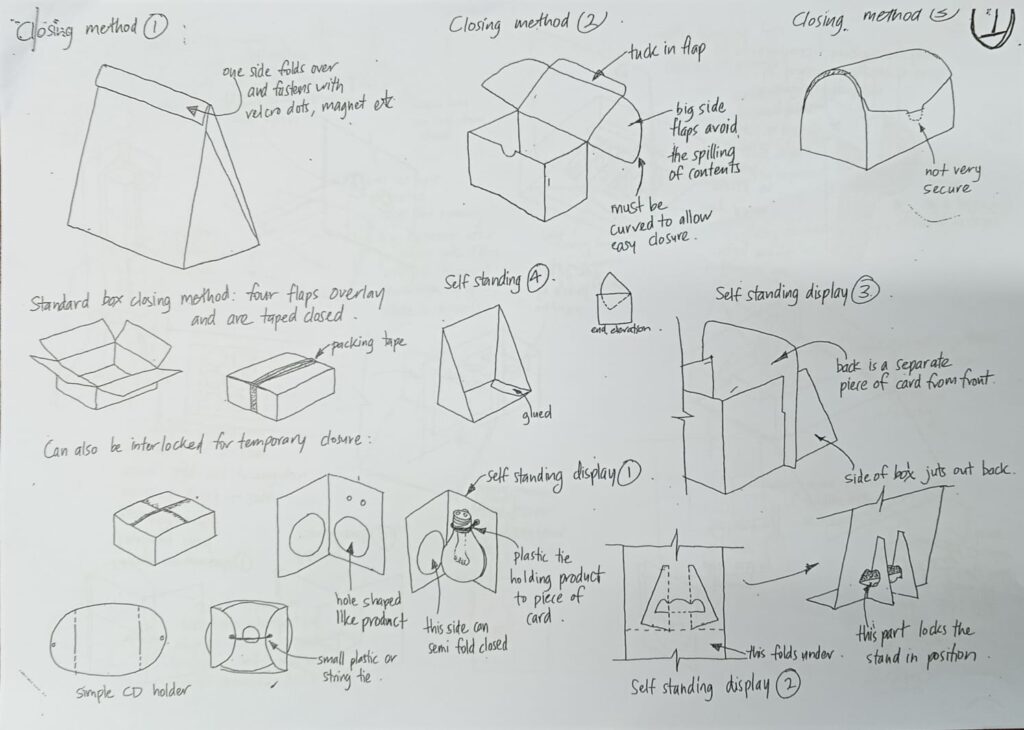 Closing method 1 :
one side folds over
and fastens with
velcro dots, magnet etc
Closing method 2
tuck in flap
big side
flaps avoid
the spilling
of contents
must be
curved to allow
easy closure.
Closing method 3
1
not very
secure
Standard box closing method: four flaps overlay
and are taped closed.
packing tape
Self standing 4
glued
end elevation.
Self standing display 3
back is a separate
piece of card from front.
side of box juts out back.
Can also be interlocked for temporary closure:
hole shaped
like product
Self standing display 1
plastic tie
holding product
to piece of
card.
this side can
semi fold closed
Simple CD holder
small plastic or
string tie.
this folds under.
Self standing display 2
this part locks the
stand in position.